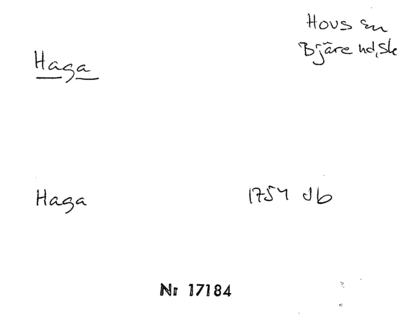 Hovs sn
Bjäre hd, Sk
Haga
Haga 1754 Jb
Nr 17184